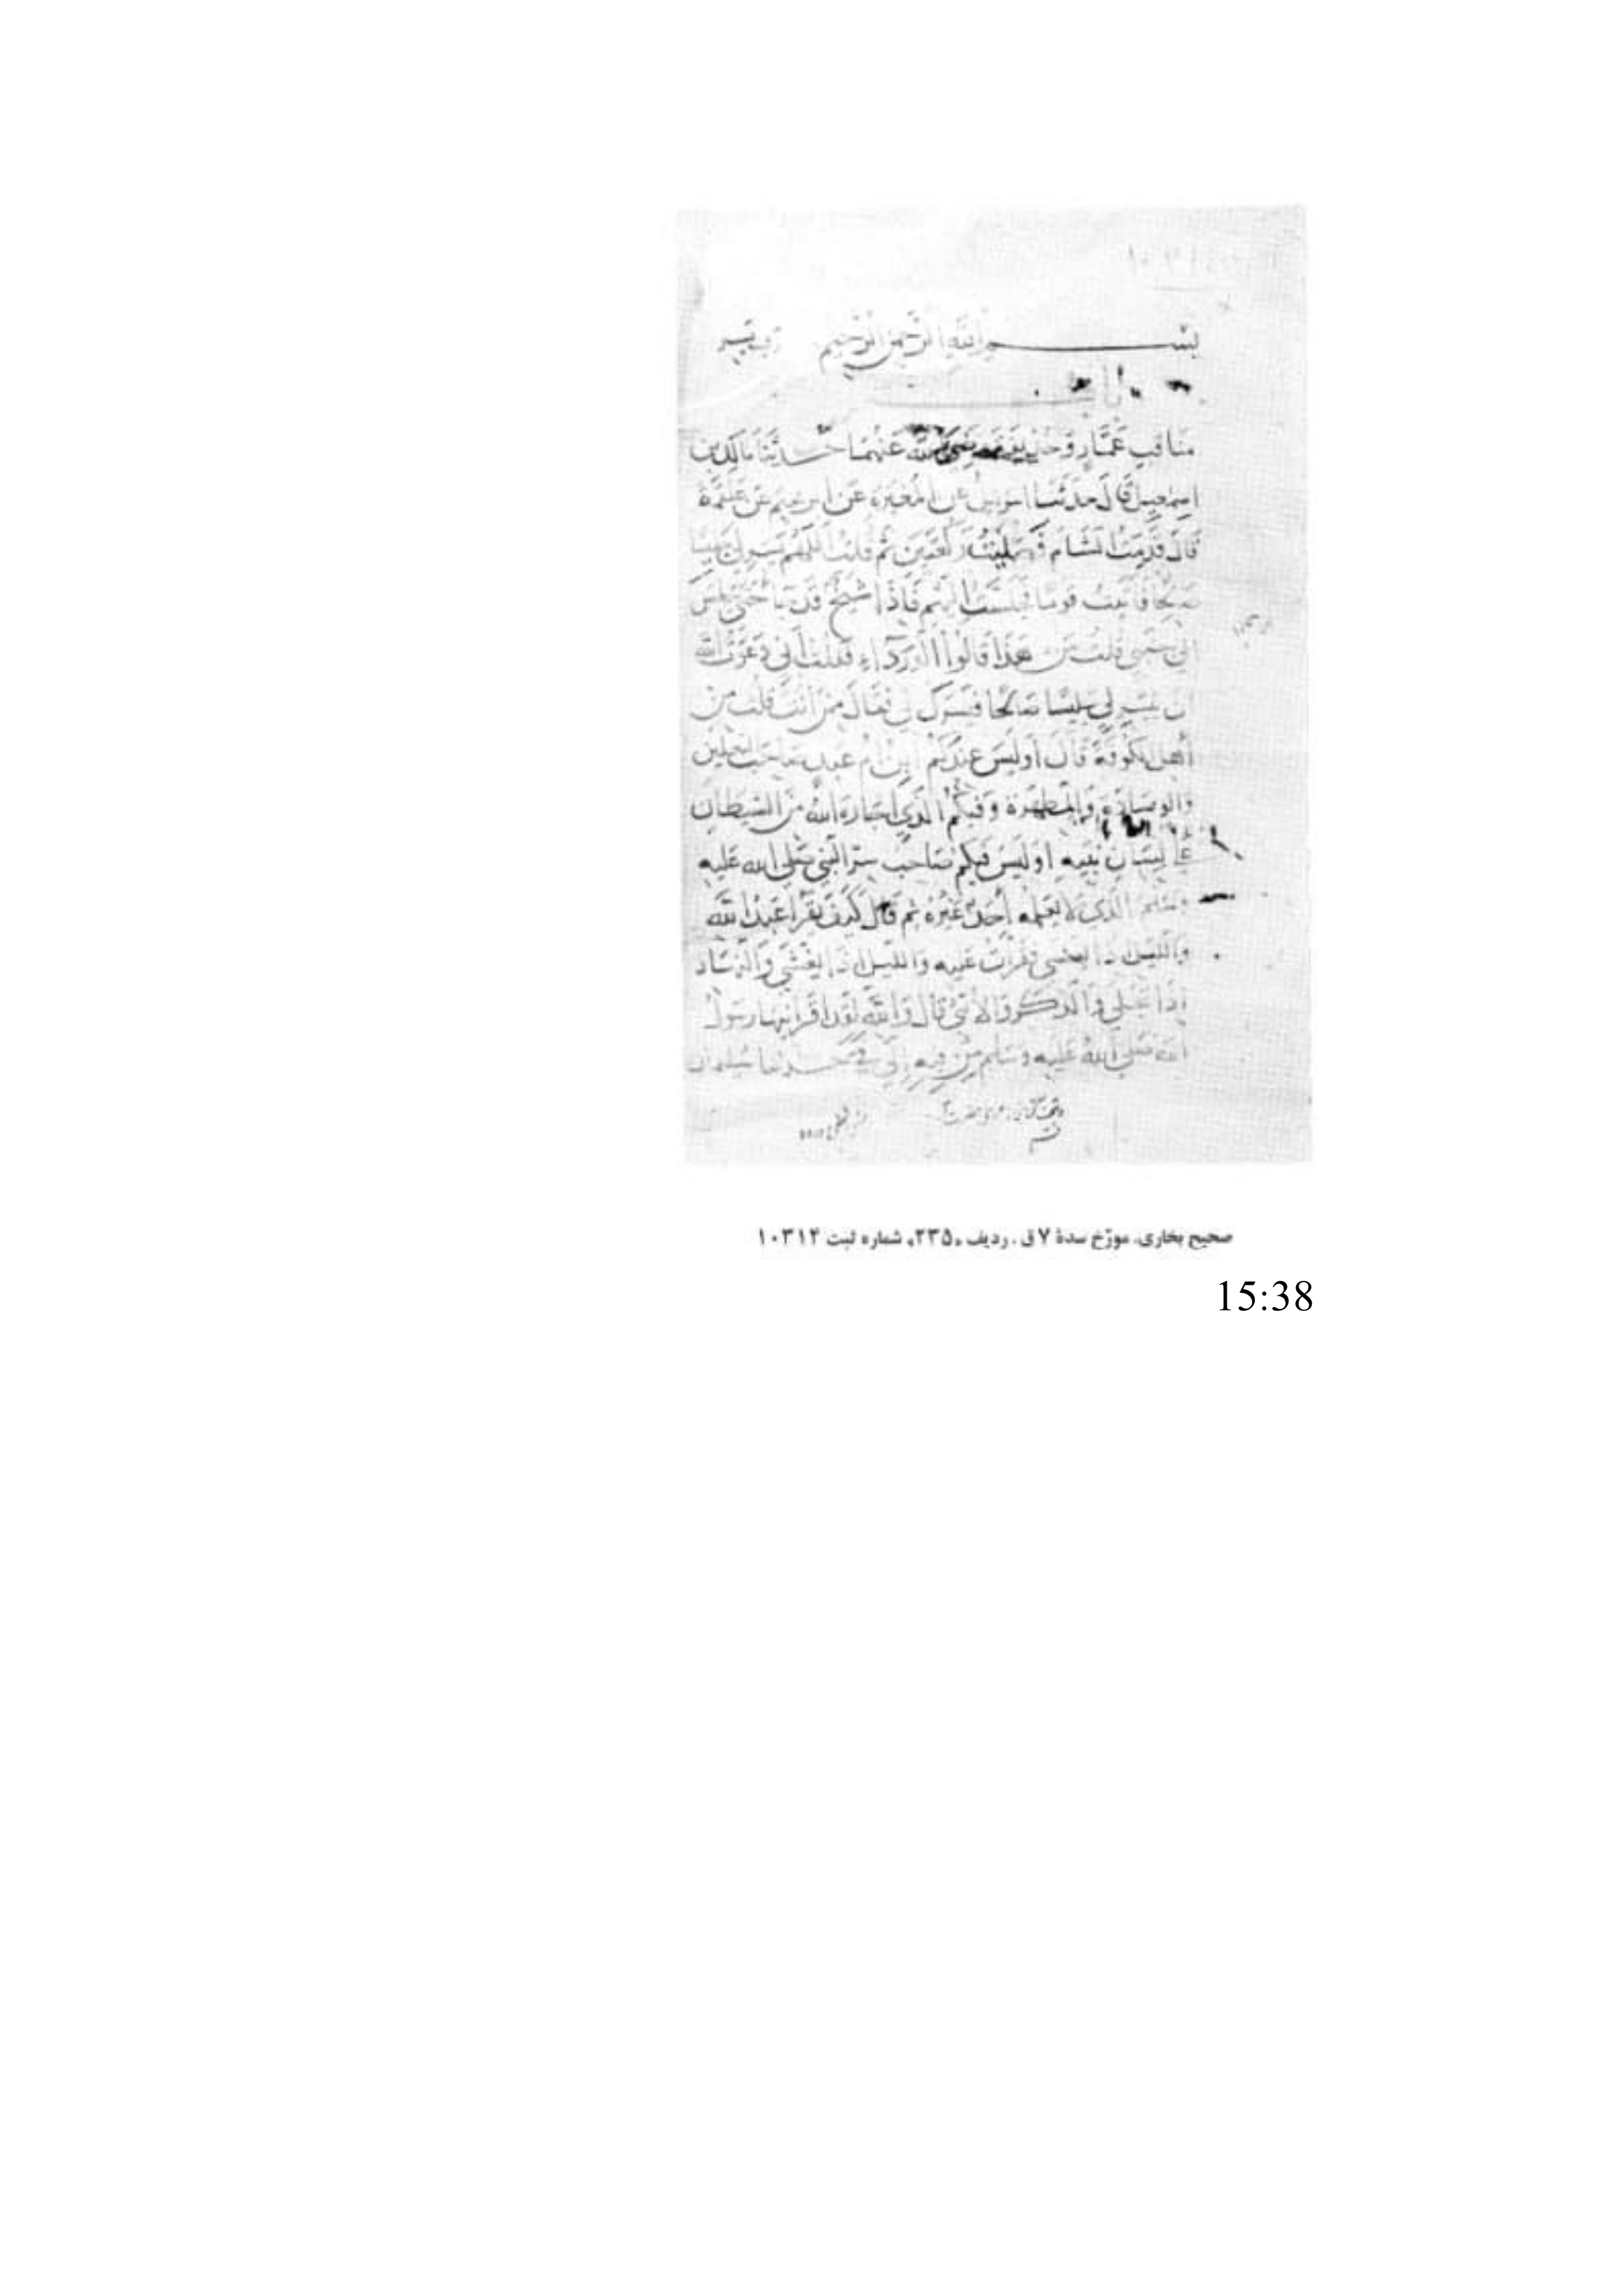 بسم الله الرحمن الرحيم رب يسر
باب
مناقب عمار وحذيفة رضي الله عنهما حدثنا مالك بن
اسمعيل قال حدثنا اسرايل عن المغيرة عن ابرهيم عن علقمة
قال قدمت الشام فصليت ركعتين ثم قلت اللهم يسر لي جليسا
صالحا فاتيت قوما فجلست اليهم فاذا شيخ قد جا حتى جلس
الي جنبي قلت من هذا قالوا ابو الدرداء فقلت اني دعوت الله
ان ييسر لي جليسا صالحا فيسرك لي فقال ممن انت قلت من
أهل الكوفة قال اوليس عندكم ابن ام عبد صاحب النعلين
والوسادة والمطهرة وفيكم الذي اجاره الله من الشيطان
على لسان نبيه اوليس فيكم صاحب سر النبي صلى الله عليه
وسلم الذي لا يعلمه أحد غيره ثم قال كيف يقرا عبد الله
والليل اذا يغشى فقرات عليه والليل اذا يغشى والنهار
اذا تجلى والذكر والانثى قال والله لقد اقرانيها رسول
الله صلى الله عليه وسلم من فيه الي في حدثنا سليمان
صحیح بخاری، مورّخ سدهٔ ۷ ق. ردیف «۲۳۵» شماره ثبت ۱۰۳۱۴
15:38